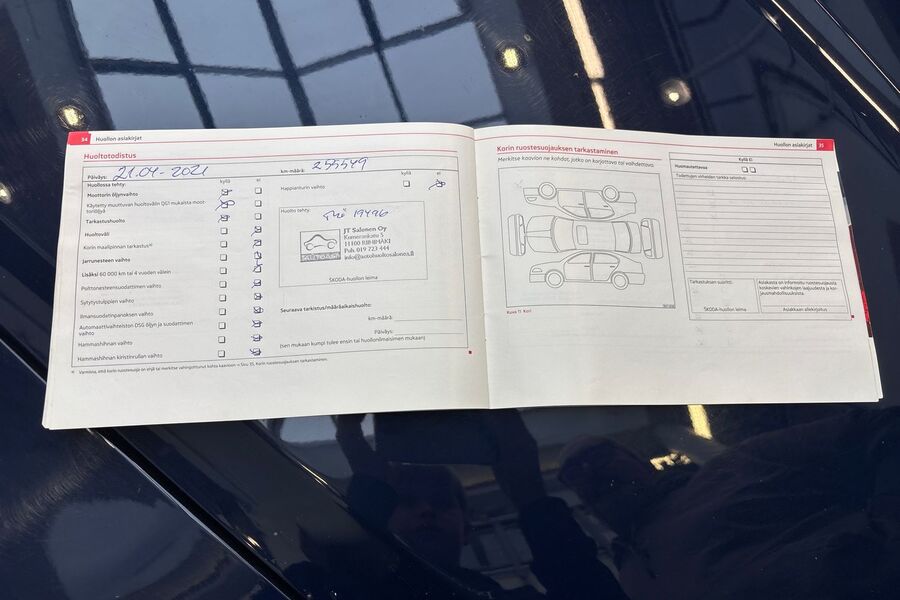 34 Huollon asiakirjat
Huoltotodistus
Päiväys: 21.04-2021
km-määrä: 255549
Huollossa tehty:
kyllä ei
Moottorin öljynvaihto
Käytetty muuttuvan huoltovälin QG1 mukaista moot-
toriöljyä
Tarkastushuolto
Huoltoväli
Korin maalipinnan tarkastus
Jarrunesteen vaihto
Lisäksi 60 000 km tai 4 vuoden välein
Polttonesteensuodattimen vaihto
Sytytystulppien vaihto
Ilmansuodatinpanoksen vaihto
Automaattivaihteiston DSG öljyn ja suodattimen
vaihto
Hammashihnan vaihto
Hammashihnan kiristinrullan vaihto
kyllä ei
Happianturin vaihto
Huolto tehty:
19496
JT Salonen Oy
Kumerankatu 5
11100 RIIHIMÄKI
Puh. 019 723 444
info@autohuoltosalonen.fi
ŠKODA-huollon leima
Seuraava tarkistus/määräaikaishuolto:
km-määrä:
Päiväys:
(sen mukaan kumpi tulee ensin tai huollonilmaisimen mukaan)
a) Varmista, että korin ruostesuoja on ehjä tai merkitse vahingoittunut kohta kaavioon → Sivu 35, Korin ruostesuojauksen tarkastaminen.
Huollon asiakirjat 35
Korin ruostesuojauksen tarkastaminen
Merkitse kaavioon ne kohdat, jotka on korjattava tai vaihdettava.
Kuva 11 Kori
Kyllä Ei
Huomautettavaa
Todettujen virheiden tarkka selostus:
Tarkastuksen suoritti:
ŠKODA-huollon leima
Asiakasta on informoitu ruostesuojausta
koskevien vahinkojen laajuudesta ja kor-
jausmahdollisuuksista.
Asiakkaan allekirjoitus